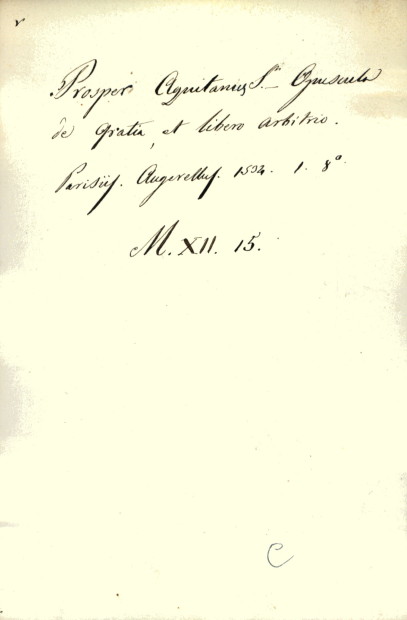 Prosper Aquitanus S.ti Opuscula
de gratia, et libero arbitrio.
Parisiis. Augerellus. 1534. 1. 8º.
M. XII. 15.
C